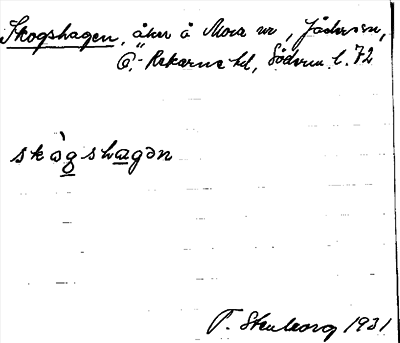 Skogshagen, åker å Mora nr, Jäders sn,
Ö.-Rekarne hd, Söderm. l. 72
skò̱gshagən
T. Stenborg 1931